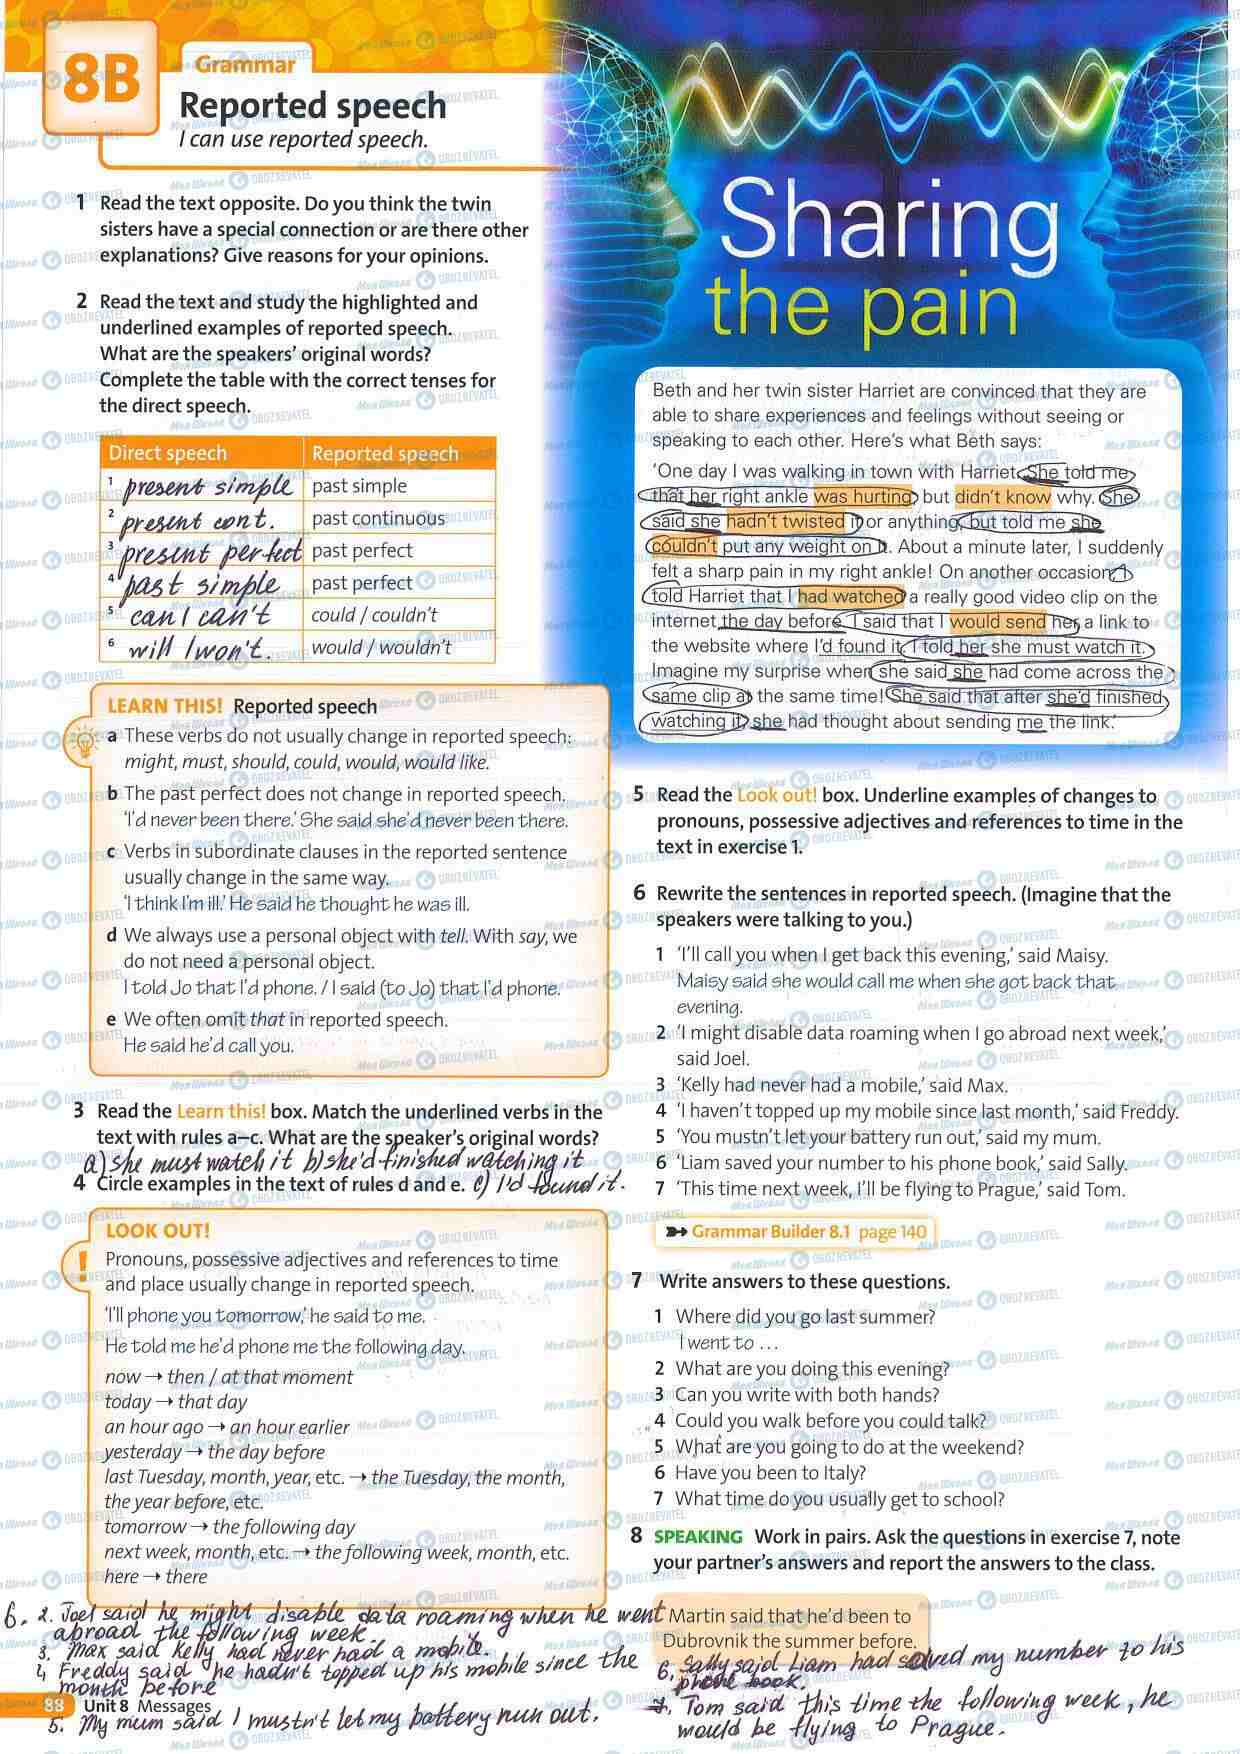 8B
Grammar
Reported speech
I can use reported speech.
1 Read the text opposite. Do you think the twin
sisters have a special connection or are there other
explanations? Give reasons for your opinions.
2 Read the text and study the highlighted and
underlined examples of reported speech.
What are the speakers' original words?
Complete the table with the correct tenses for
the direct speech.
Direct speech Reported speech
1 present simple past simple
2 present cont. past continuous
3 present perfect past perfect
4 past simple past perfect
5 can / can't could / couldn't
6 will / won't. would / wouldn't
LEARN THIS! Reported speech
a These verbs do not usually change in reported speech:
might, must, should, could, would, would like.
b The past perfect does not change in reported speech.
'I'd never been there.' She said she'd never been there.
c Verbs in subordinate clauses in the reported sentence
usually change in the same way.
'I think I'm ill.' He said he thought he was ill.
d We always use a personal object with tell. With say, we
do not need a personal object.
I told Jo that I'd phone. / I said (to Jo) that I'd phone.
e We often omit that in reported speech.
He said he'd call you.
3 Read the Learn this! box. Match the underlined verbs in the
text with rules a–c. What are the speaker's original words?
a) she must watch it b) she'd finished watching it
4 Circle examples in the text of rules d and e. c) I'd found it.
LOOK OUT!
! Pronouns, possessive adjectives and references to time
and place usually change in reported speech.
'I'll phone you tomorrow,' he said to me.
He told me he'd phone me the following day.
now → then / at that moment
today → that day
an hour ago → an hour earlier
yesterday → the day before
last Tuesday, month, year, etc. → the Tuesday, the month,
the year before, etc.
tomorrow → the following day
next week, month, etc. → the following week, month, etc.
here → there
6. 2. Joel said he might disable data roaming when he went
abroad the following week.
3. Max said Kelly had never had a mobile.
4 Freddy said he hadn't topped up his mobile since the
month before
88 Unit 8 Messages
5. My mum said I mustn't let my battery run out.
Sharing
the pain
Beth and her twin sister Harriet are convinced that they are
able to share experiences and feelings without seeing or
speaking to each other. Here's what Beth says:
'One day I was walking in town with Harriet. She told me
that her right ankle was hurting, but didn't know why. She
said she hadn't twisted it or anything, but told me she
couldn't put any weight on it. About a minute later, I suddenly
felt a sharp pain in my right ankle! On another occasion, I
told Harriet that I had watched a really good video clip on the
internet the day before. I said that I would send her a link to
the website where I'd found it. I told her she must watch it.
Imagine my surprise when she said she had come across the
same clip at the same time! She said that after she'd finished
watching it, she had thought about sending me the link.'
5 Read the Look out! box. Underline examples of changes to
pronouns, possessive adjectives and references to time in the
text in exercise 1.
6 Rewrite the sentences in reported speech. (Imagine that the
speakers were talking to you.)
1 'I'll call you when I get back this evening,' said Maisy.
Maisy said she would call me when she got back that
evening.
2 'I might disable data roaming when I go abroad next week,'
said Joel.
3 'Kelly had never had a mobile,' said Max.
4 'I haven't topped up my mobile since last month,' said Freddy.
5 'You mustn't let your battery run out,' said my mum.
6 'Liam saved your number to his phone book,' said Sally.
7 'This time next week, I'll be flying to Prague,' said Tom.
Grammar Builder 8.1 page 140
7 Write answers to these questions.
1 Where did you go last summer?
I went to …
2 What are you doing this evening?
3 Can you write with both hands?
4 Could you walk before you could talk?
5 What are you going to do at the weekend?
6 Have you been to Italy?
7 What time do you usually get to school?
8 SPEAKING Work in pairs. Ask the questions in exercise 7, note
your partner's answers and report the answers to the class.
Martin said that he'd been to
Dubrovnik the summer before.
6. Sally said Liam had saved my number to his
phone book.
7. Tom said this time the following week, he
would be flying to Prague.